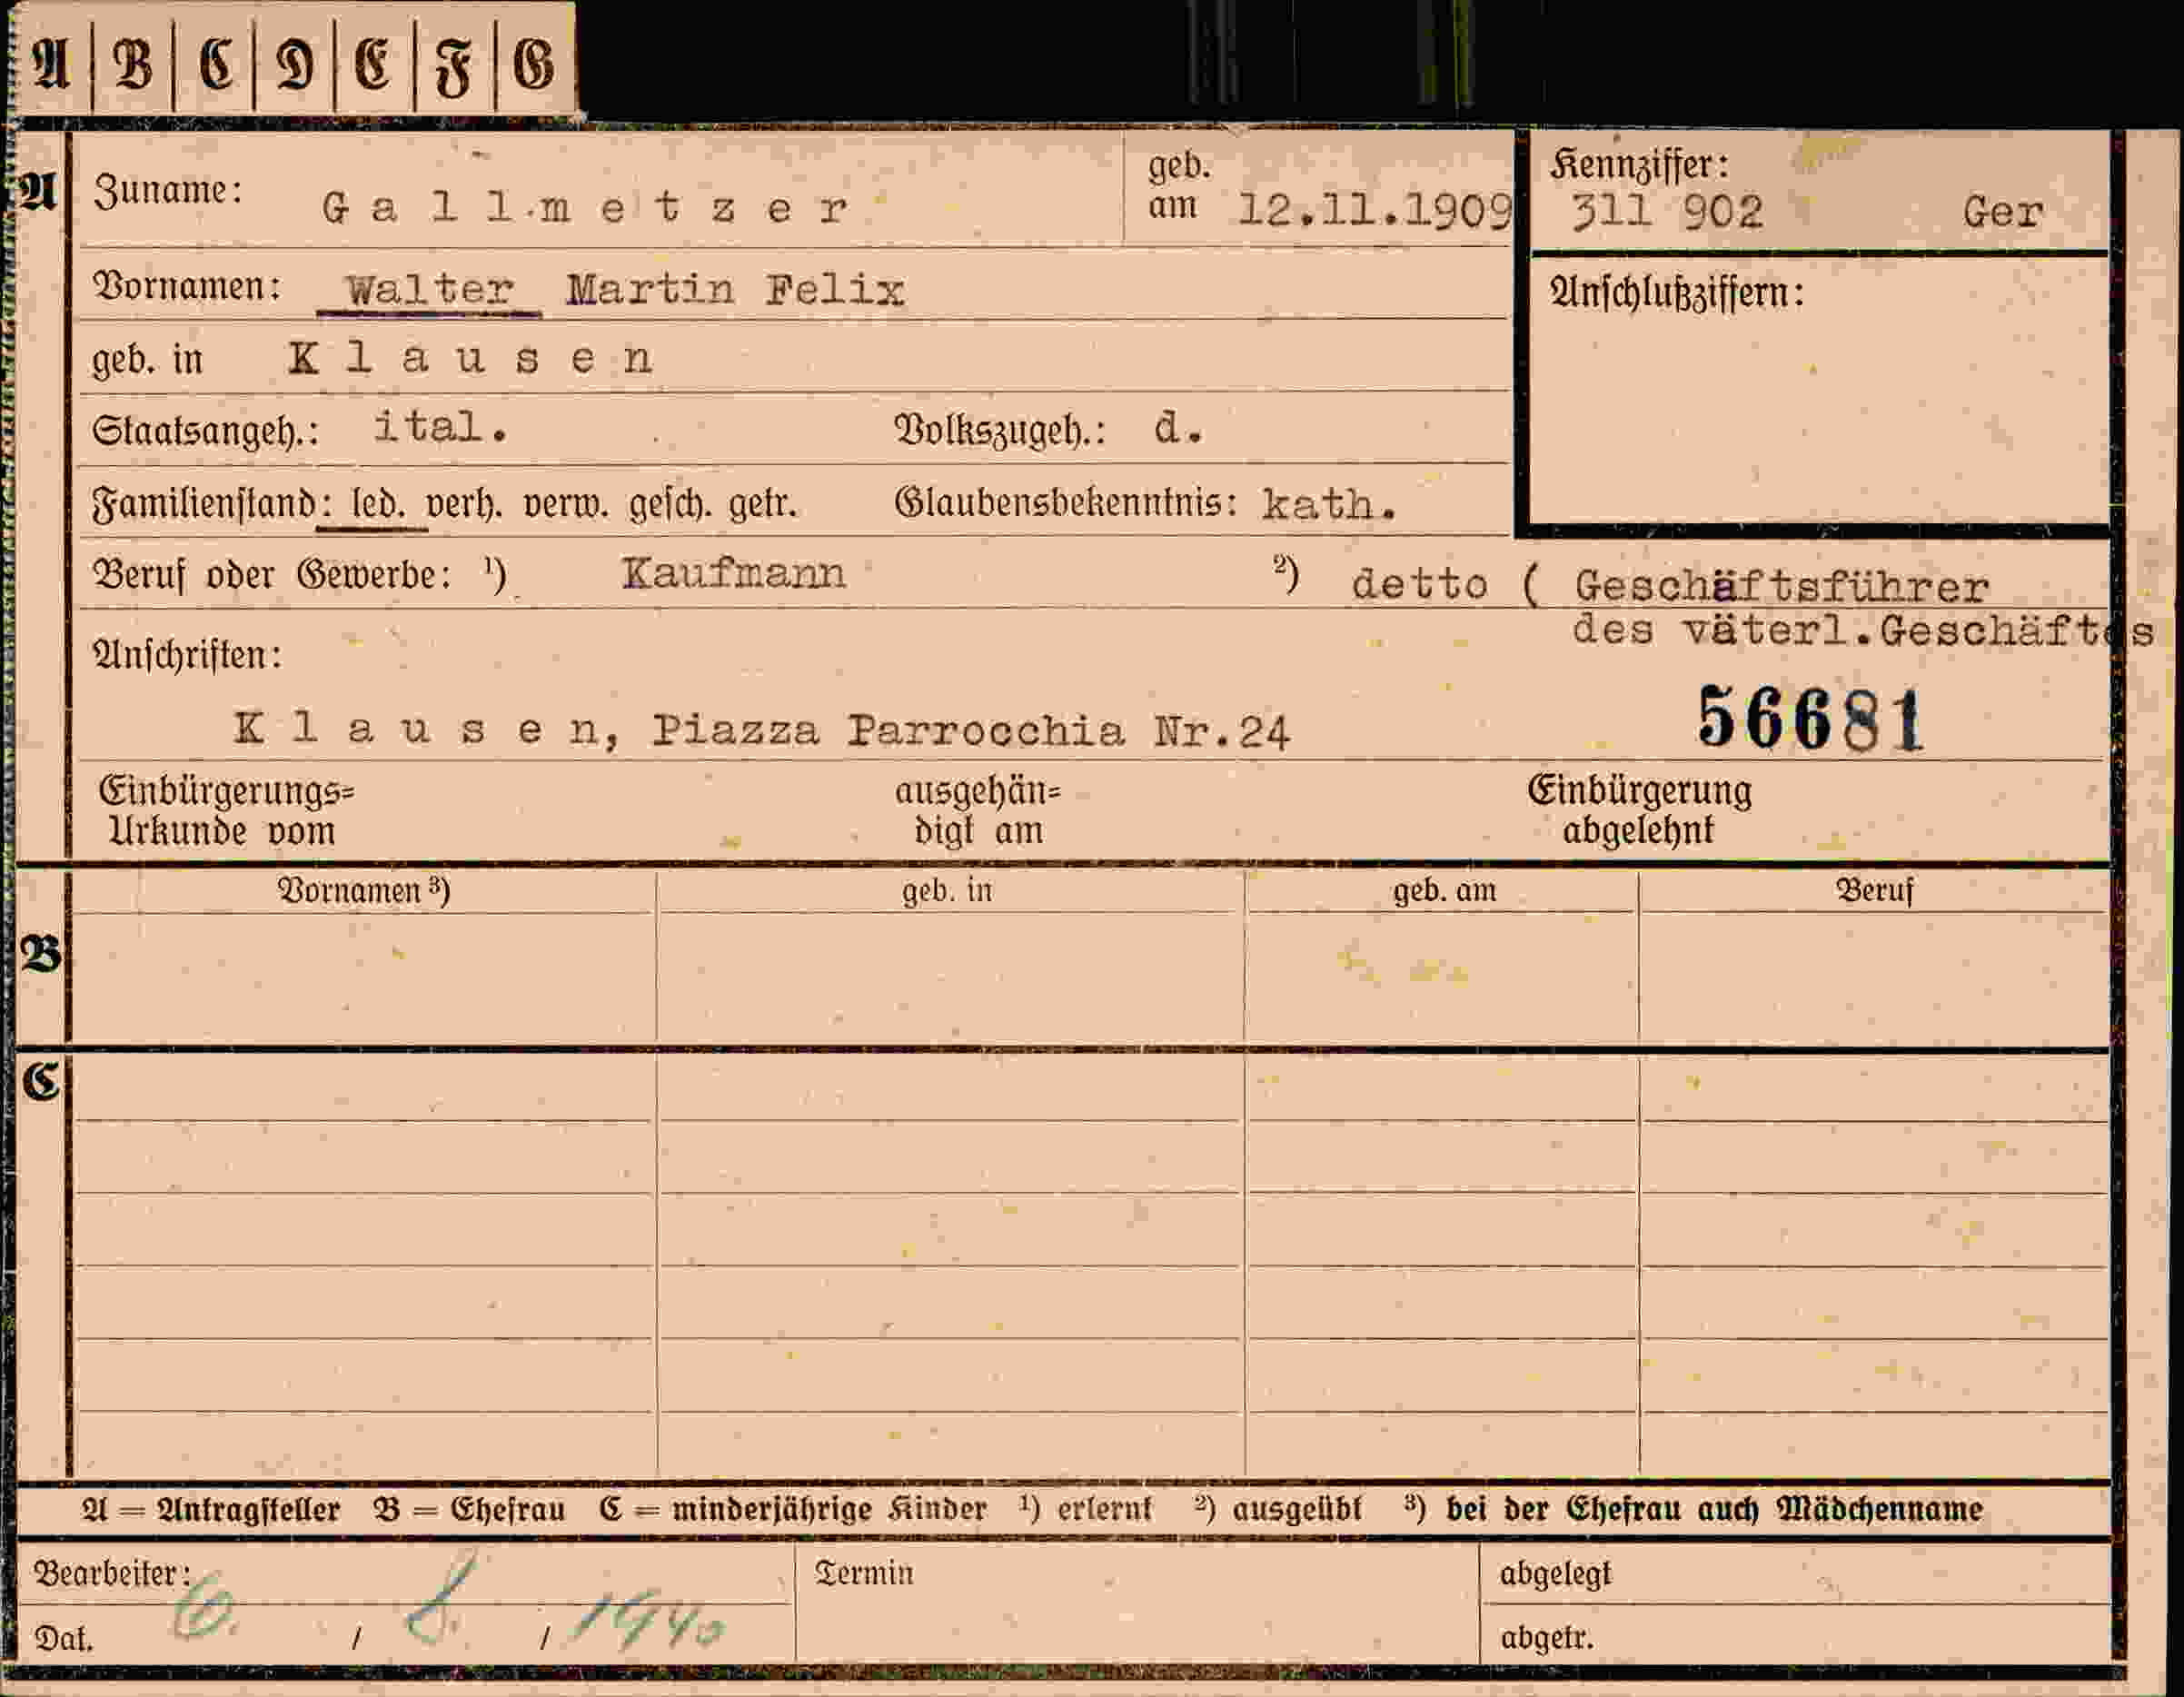 A | B | C | D | E | F | G
A Zuname: Gallmetzer geb. am 12.11.1909 Kennziffer: 311 902 Ger
Vornamen: Walter Martin Felix Anschlußziffern:
geb. in Klausen
Staatsangeh.: ital. Volkszugeh.: d.
Familienstand: led. verh. verw. gesch. getr. Glaubensbekenntnis: kath.
Beruf oder Gewerbe: ¹) Kaufmann ²) detto ( Geschäftsführer
des väterl.Geschäftes
Anschriften:
Klausen, Piazza Parrocchia Nr.24 56681
Einbürgerungs= ausgehän= Einbürgerung
Urkunde vom digt am abgelehnt
Vornamen ³) geb. in geb. am Beruf
B
C
A = Antragsteller B = Ehefrau C = minderjährige Kinder ¹) erlernt ²) ausgeübt ³) bei der Ehefrau auch Mädchenname
Bearbeiter: Termin abgelegt
Dat. / 8. / 1940 abgetr.